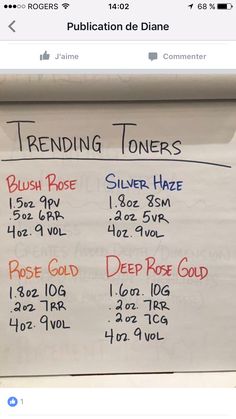 ROGERS 14:02 68 %
Publication de Diane
J'aime Commenter
TRENDING TONERS
BLUSH ROSE
1.5oz 9PV
.5oz 6RR
4oz. 9 VOL
SILVER HAZE
1.8oz 8SM
.2oz 5VR
4oz. 9 VOL
ROSE GOLD
1.8oz 10G
.2oz 7RR
4oz. 9VOL
DEEP ROSE GOLD
1.6oz. 10G
.2oz. 7RR
.2oz 7CG
4oz. 9 VOL
1